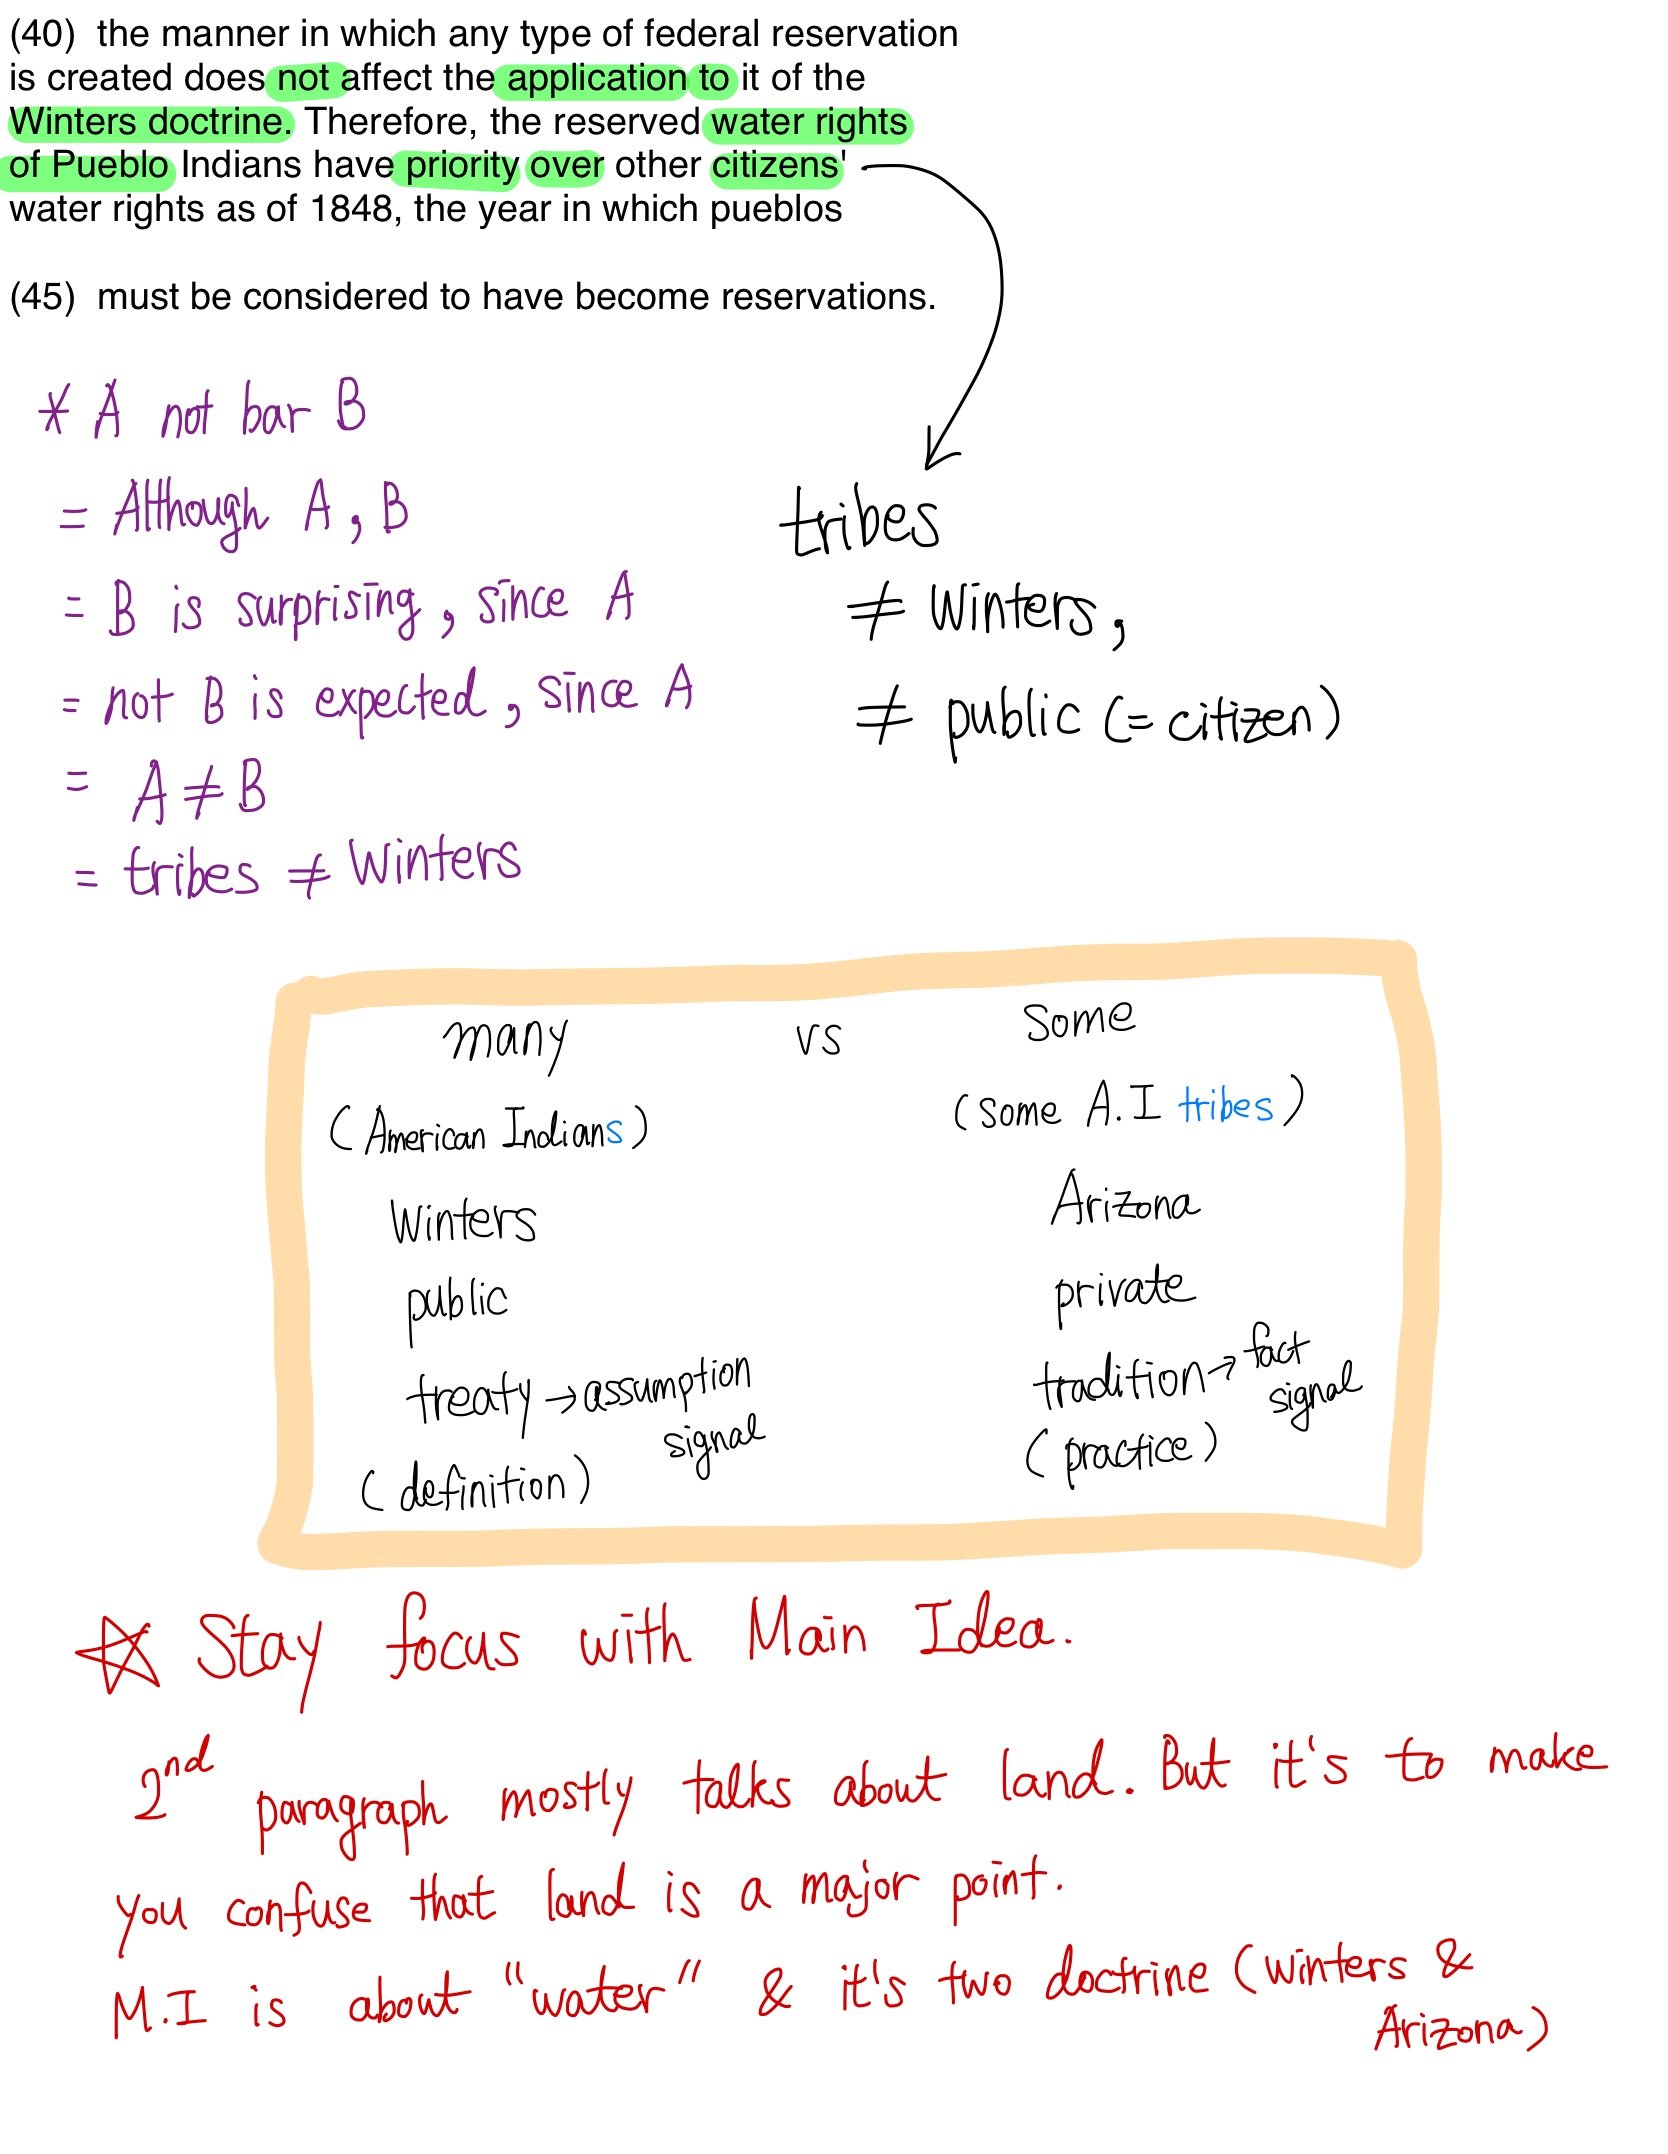 (40) the manner in which any type of federal reservation
is created does not affect the application to it of the
Winters doctrine. Therefore, the reserved water rights
of Pueblo Indians have priority over other citizens'
water rights as of 1848, the year in which pueblos
(45) must be considered to have become reservations.
* A not bar B
= Although A, B
= B is surprising, since A
= not B is expected, since A
= A ≠ B
= tribes ≠ Winters
tribes
≠ Winters,
≠ public (= citizen)
many vs some
(American Indians) (some A.I tribes)
Winters Arizona
public private
treaty → assumption signal tradition → fact signal
(definition) (practice)
☆ Stay focus with Main Idea.
2nd paragraph mostly talks about land. But it's to make
you confuse that land is a major point.
M.I is about "water" & it's two doctrine (winters &
Arizona)